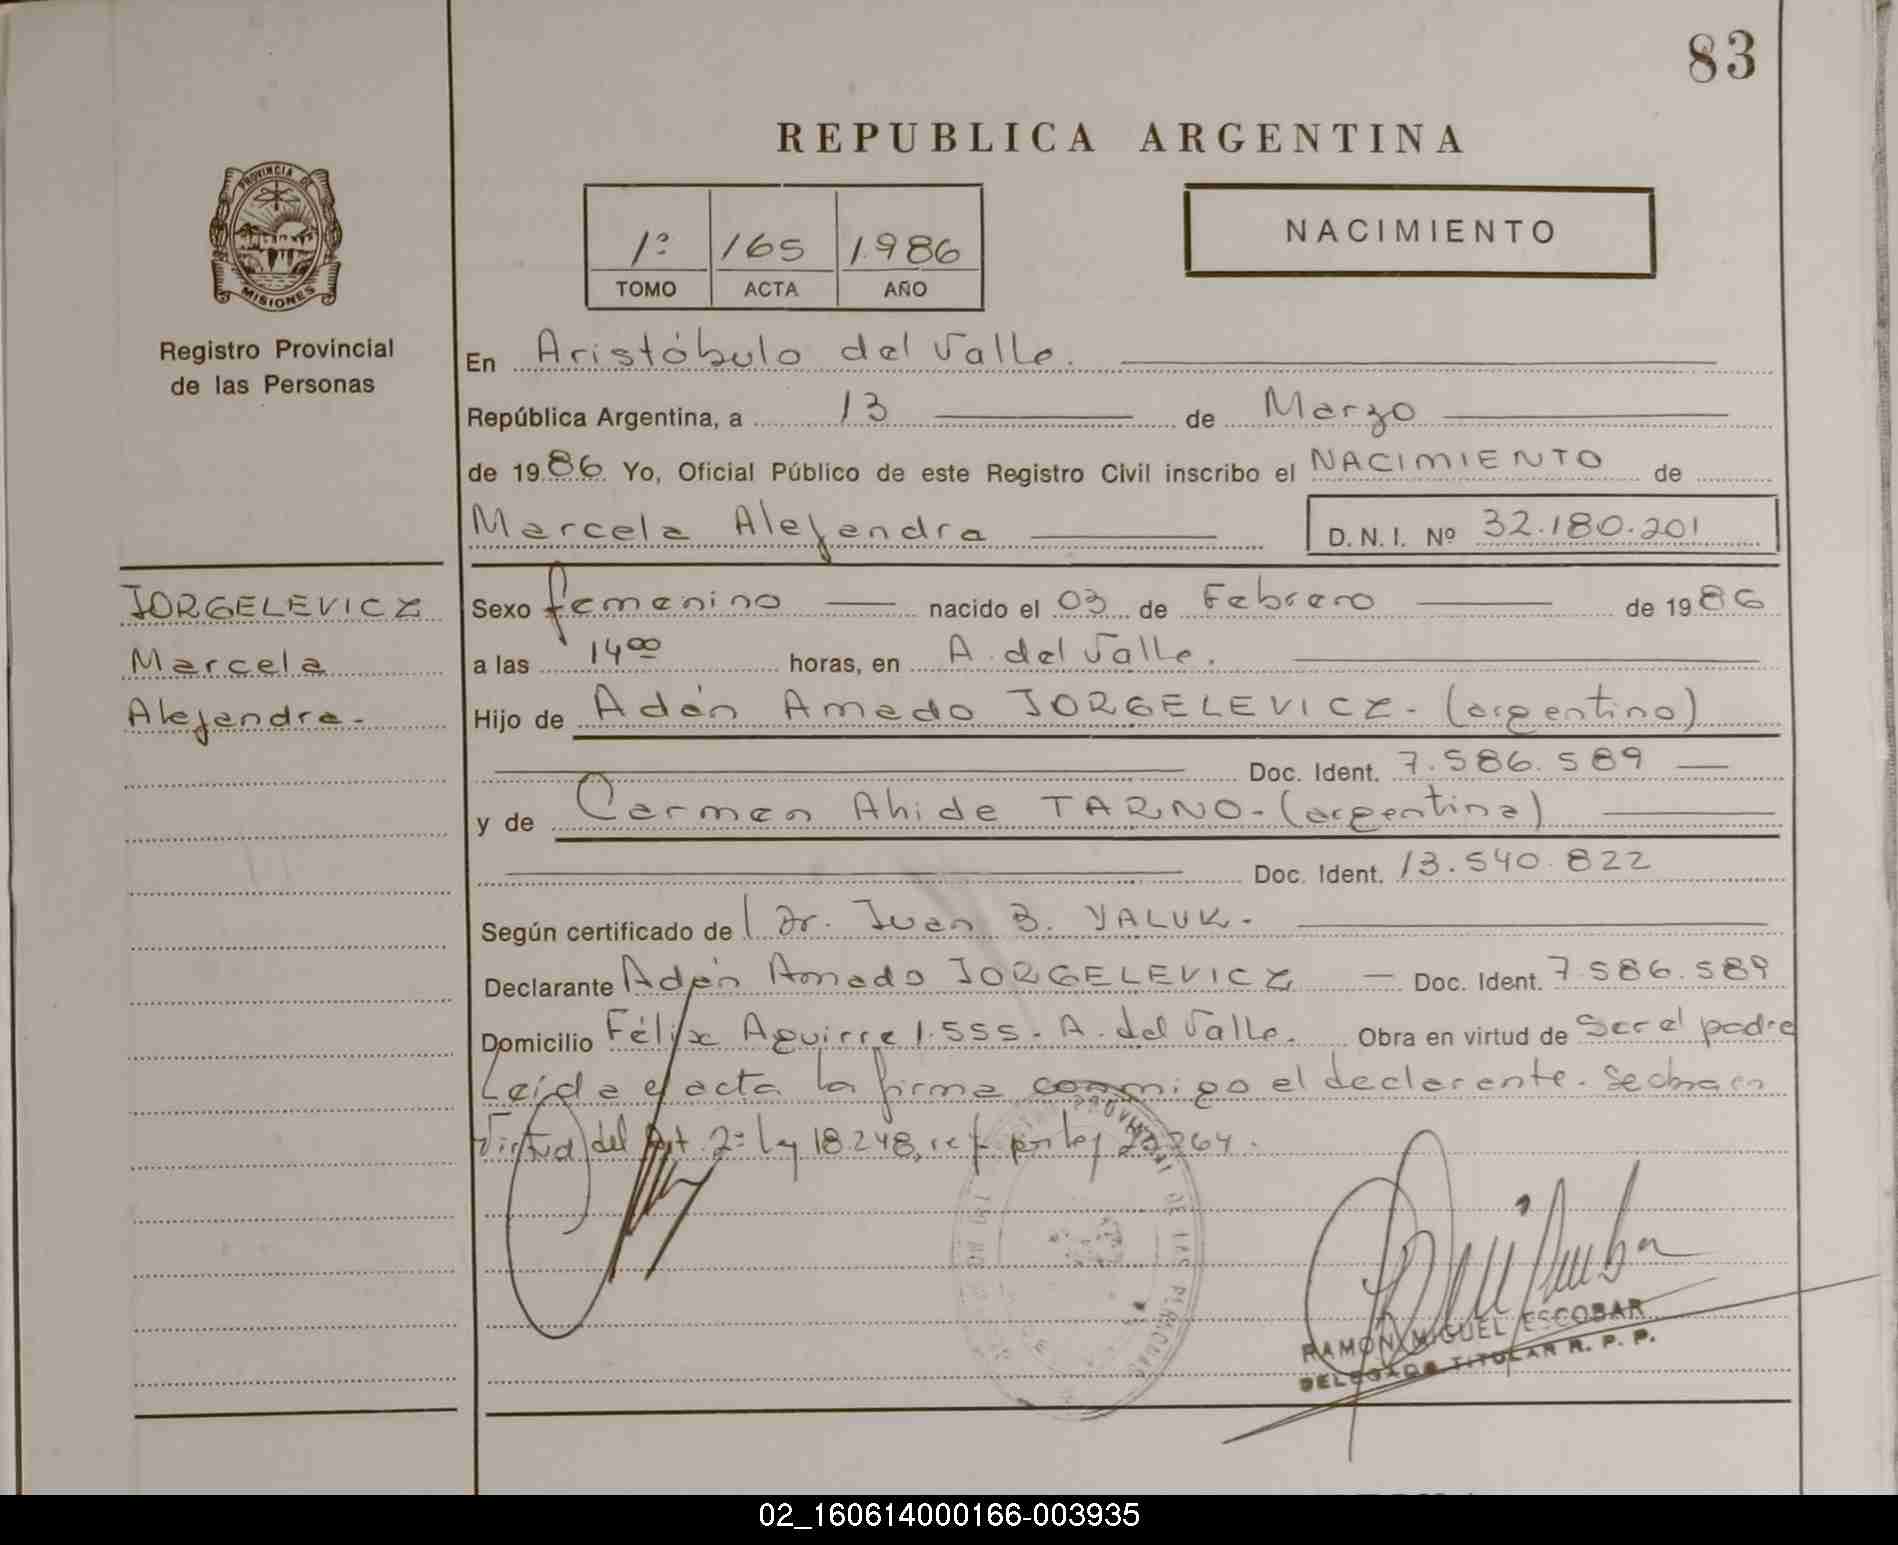 83
REPUBLICA ARGENTINA
PROVINCIA DE
MISIONES
Registro Provincial
de las Personas
1º 165 1.986
TOMO ACTA AÑO
NACIMIENTO
En Aristóbulo del Valle.
República Argentina, a 13 de Marzo
de 1986 Yo, Oficial Público de este Registro Civil inscribo el NACIMIENTO de
Marcela Alejandra D. N. I. Nº 32.180.201
JORGELEVICZ
Marcela
Alejandra-
Sexo femenino nacido el 03 de Febrero de 1986
a las 14 00 horas, en A. del Valle.
Hijo de Adán Amado JORGELEVICZ- (argentino)
Doc. Ident. 7.586.589
y de Carmen Ahide TARNO- (argentina)
Doc. Ident. 13.540.822
Según certificado de Dr. Juan B. YALUK-
Declarante Adán Amado JORGELEVICZ Doc. Ident. 7.586.589
Domicilio Félix Aguirre 1.555- A. del Valle. Obra en virtud de Ser el padre
Leída el acta la firma conmigo el declarante. Se obra en
Virtud del Art. 2º Ley 18.248, ref. por ley
DE LAS PERSONAS
RAMON MIGUEL ESCOBAR
DELEGADO TITULAR R. P. P.
02_160614000166-003935